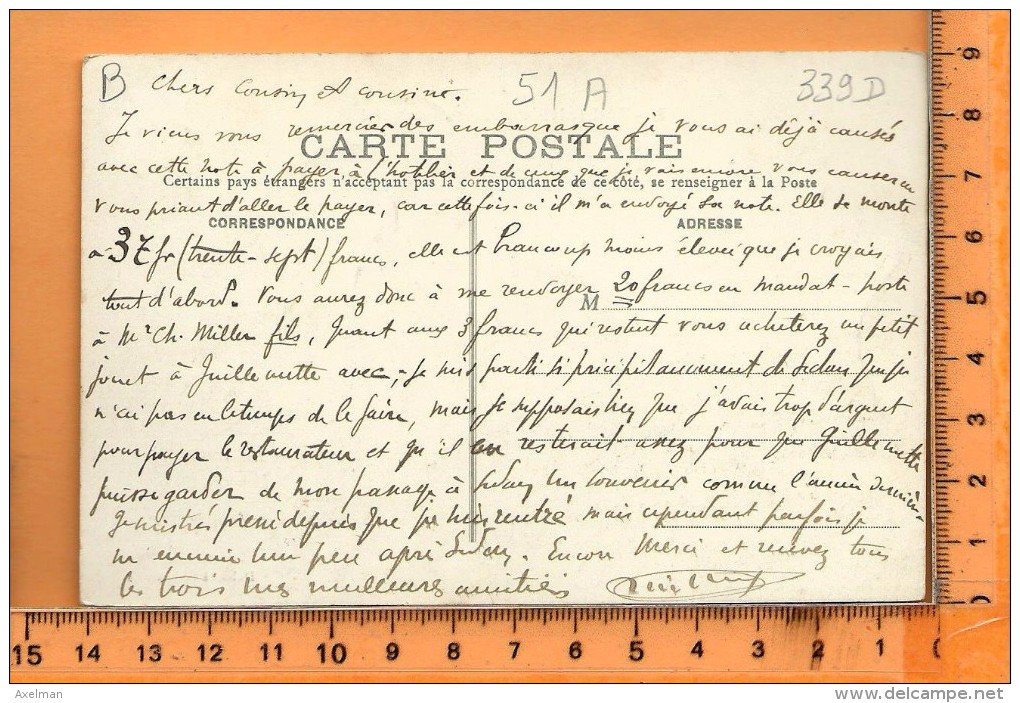 B Chers Cousin et cousine. 51 A 339 D
Je viens vous remercier des embarras que je vous ai déjà causés
CARTE POSTALE
avec cette note à payer à l'hotelier et de ceux que je vais encore vous causer en
Certains pays étrangers n'acceptant pas la correspondance de ce côté, se renseigner à la Poste
vous priant d'aller le payer, car cette fois-ci il m'a envoyé sa note. Elle se monte
CORRESPONDANCE ADRESSE
à 37 fr (trente-sept) francs, elle est beaucoup moins élevée que je croyais
tout d'abord. Vous aurez donc à me renvoyer 20 francs en mandat-poste
M
à Mr Ch. Miller fils, Quant aux 3 francs qui restent vous acheterez un petit
jouet à Guillemette avec, je suis parti si précipitamment de Sedan que je
n'ai pas eu le temps de le faire, mais je supposais bien que j'avais trop d'argent
pour payer le restaurateur et qu'il en resterait assez pour que Guillemette
puisse garder de mon passage à Sedan un souvenir comme l'année dernière
Je suis très pressé depuis que je suis rentré mais cependant parfois je
m'ennuie un peu après Sedan. Encore Merci et recevez tous
les trois mes meilleures amitiés
15 14 13 12 11 10 9 8 7 6 5 4 3 2 1 0
9
8
7
6
5
4
3
2
1
0
Axelman
www.delcampe.net